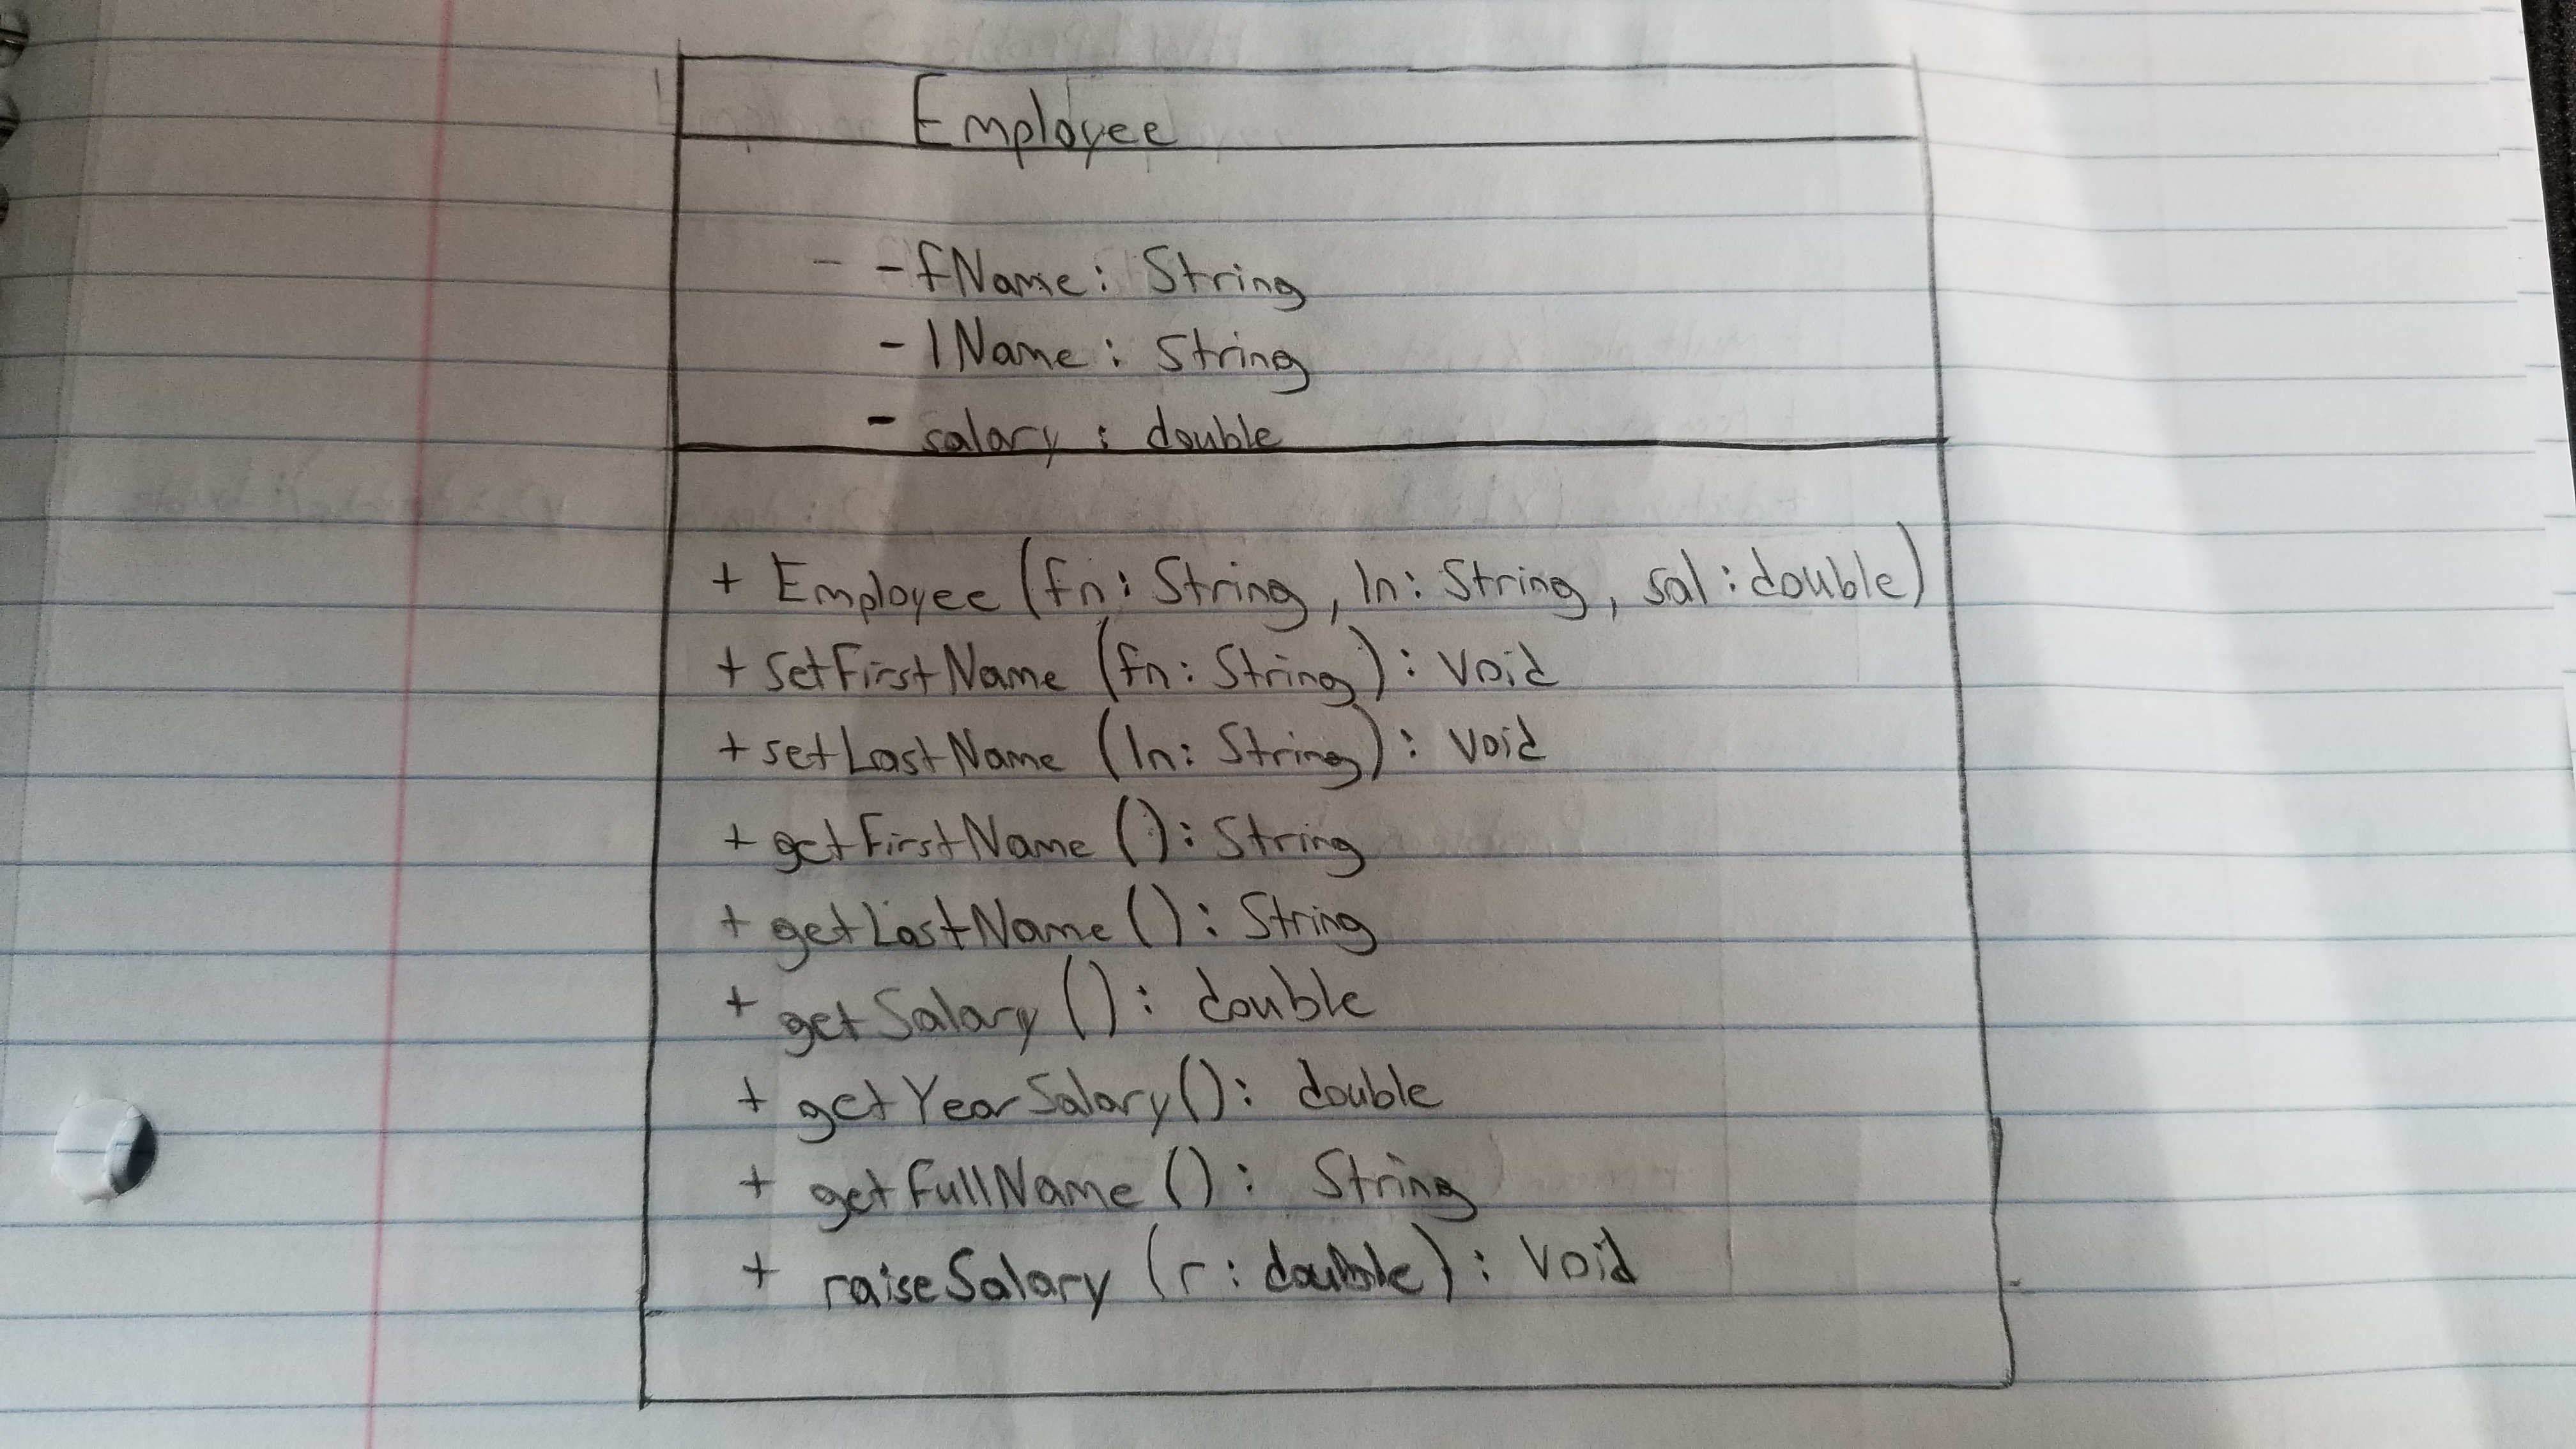 Employee
- - fName: String
- lName: String
- salary: double
+ Employee (fn: String, ln: String, sal: double)
+ setFirstName (fn: String): void
+ setLastName (ln: String): void
+ getFirstName (): String
+ getLastName (): String
+ getSalary (): double
+ getYearSalary(): double
+ getFullName (): String
+ raiseSalary (r: double): void